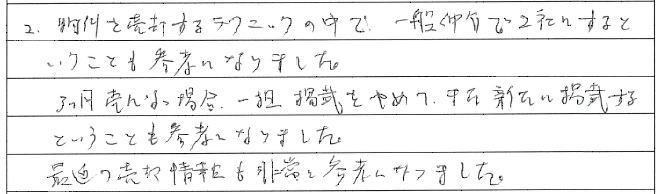 2. 物件を売却するテクニックの中で、一般仲介で2社にすると
いうことも参考になりました。
3ヶ月売れない場合、一担掲載をやめて、また新たに掲載する
ということも参考になりました。
最近の売却情報も非常に参考になりました。